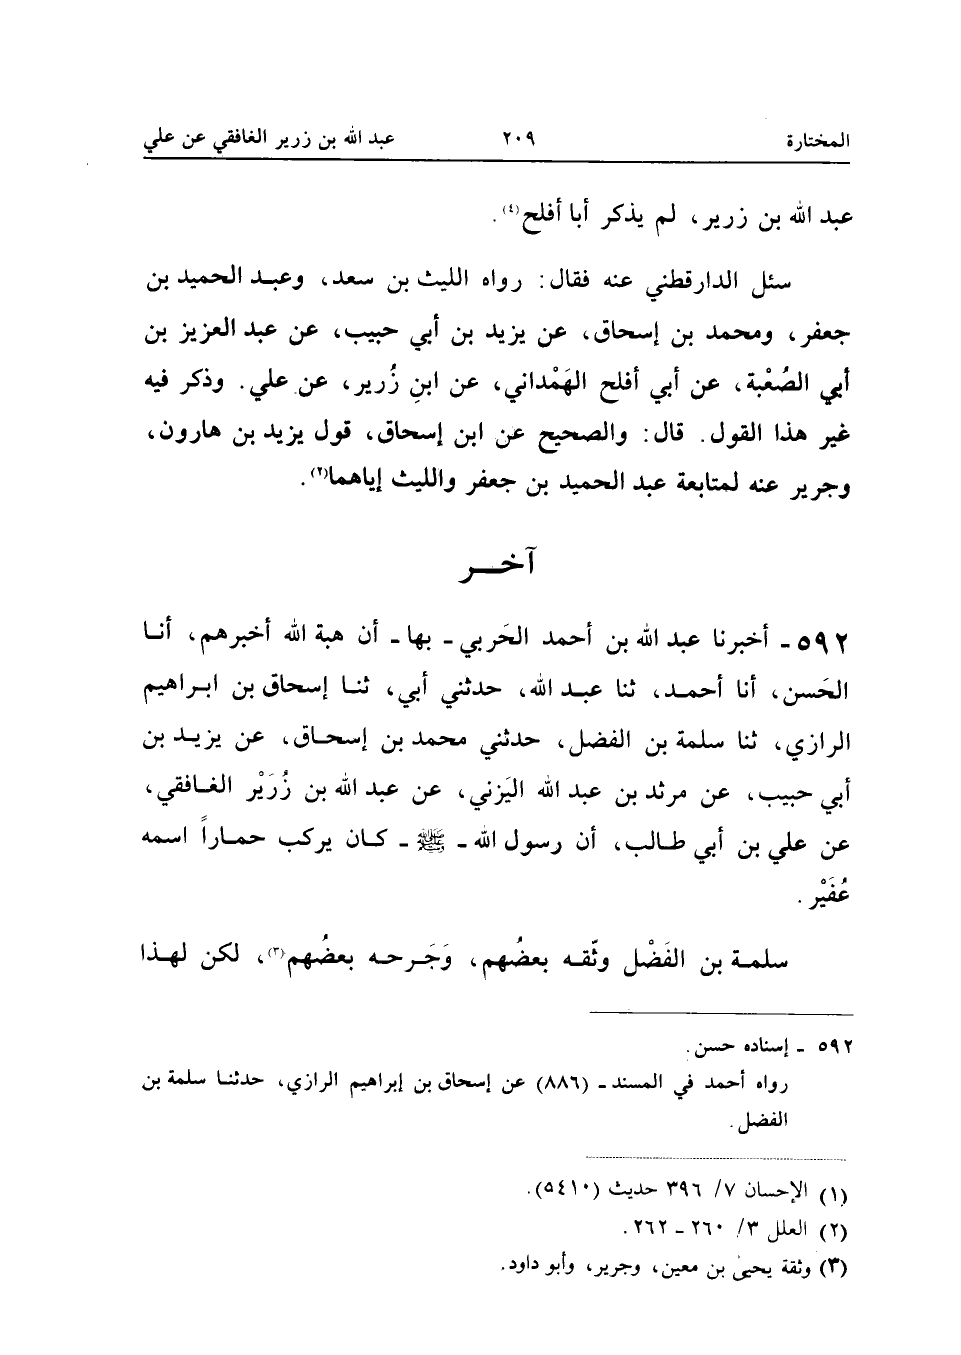 المختارة ٢٠٩ عبد الله بن زرير الغافقي عن علي
عبد الله بن زرير، لم يذكر أبا أفلح(٤).
سئل الدارقطني عنه فقال: رواه الليث بن سعد، وعبـد الحميد بن
جعفر، ومحمد بن إسحاق، عن يزيد بن أبي حبيب، عن عبد العزيز بن
أبي الصُعْبة، عن أبي أفلح الهَمْداني، عن ابنِ زُرير، عن علي. وذكر فيه
غير هذا القول. قال: والصحيح عن ابن إسحاق، قول يزيد بن هارون،
وجرير عنه لمتابعة عبد الحميد بن جعفر والليث إياهما(٢).
آخـــر
٥٩٢ـ أخبرنا عبد الله بن أحمد الحَربي ـ بها ـ أن هبة الله أخبرهم، أنـا
الحَسن، أنا أحمـد، ثنا عبـد الله، حدثني أبي، ثنـا إسحاق بن ابـراهيم
الرازي، ثنا سلمة بن الفضل، حدثني محمد بن إسحـاق، عن يزيـد بن
أبي حبيب، عن مرثد بن عبد الله اليَزني، عن عبد الله بن زُرَيْر الغـافقي،
عن علي بن أبي طـالب، أن رسول الله ـ ﷺ ـ كـان يركب حمـاراً اسمه
عُفَيْر.
سلمـة بن الفَضْل وثّقـه بعضُهم، وَجَـرحـه بعضُهم(٣)، لكن لهـذا
٥٩٢ ـ إسناده حسن.
رواه أحمد في المسند ـ (٨٨٦) عن إسحاق بن إبراهيم الرازي، حدثنـا سلمة بن
الفضل.
(١) الإحسان ٧/ ٣٩٦ حديث (٥٤١٠).
(٢) العلل ٣/ ٢٦٠ ـ ٢٦٢.
(٣) وثقة يحيىٰ بن معين، وجرير، وأبو داود.